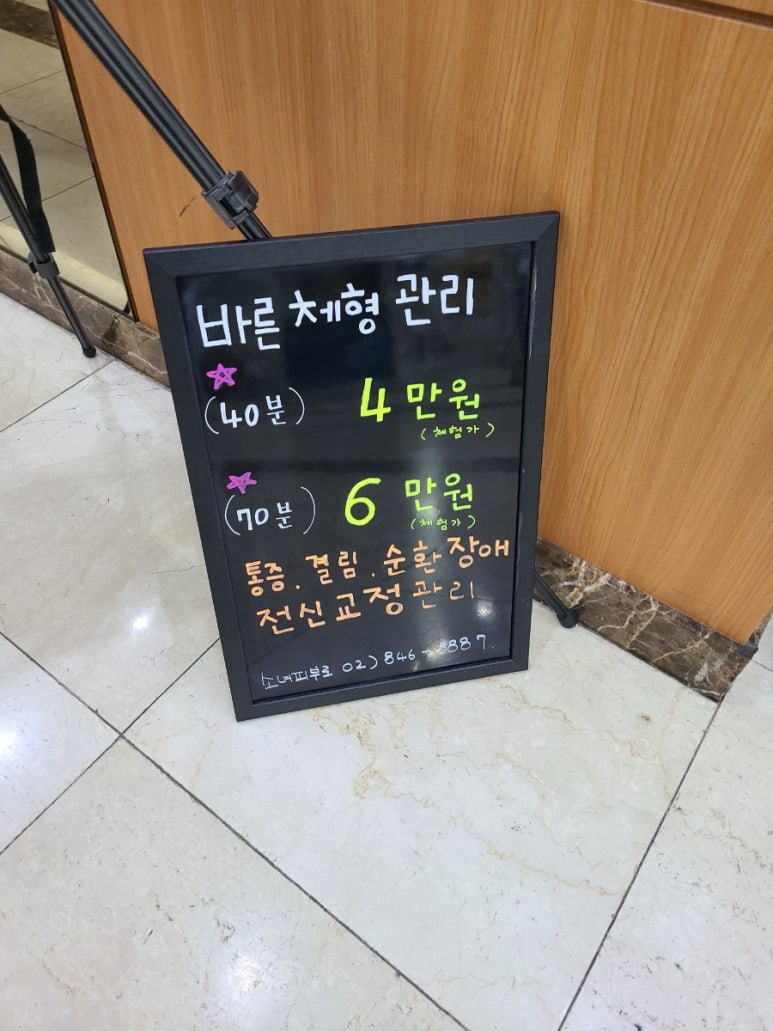 바른 체형 관리
(40분) 4만원
(체험가)
(70분) 6만원
(체험가)
통증. 결림. 순환장애
전신교정관리
소녀피부로 02) 846-8887.